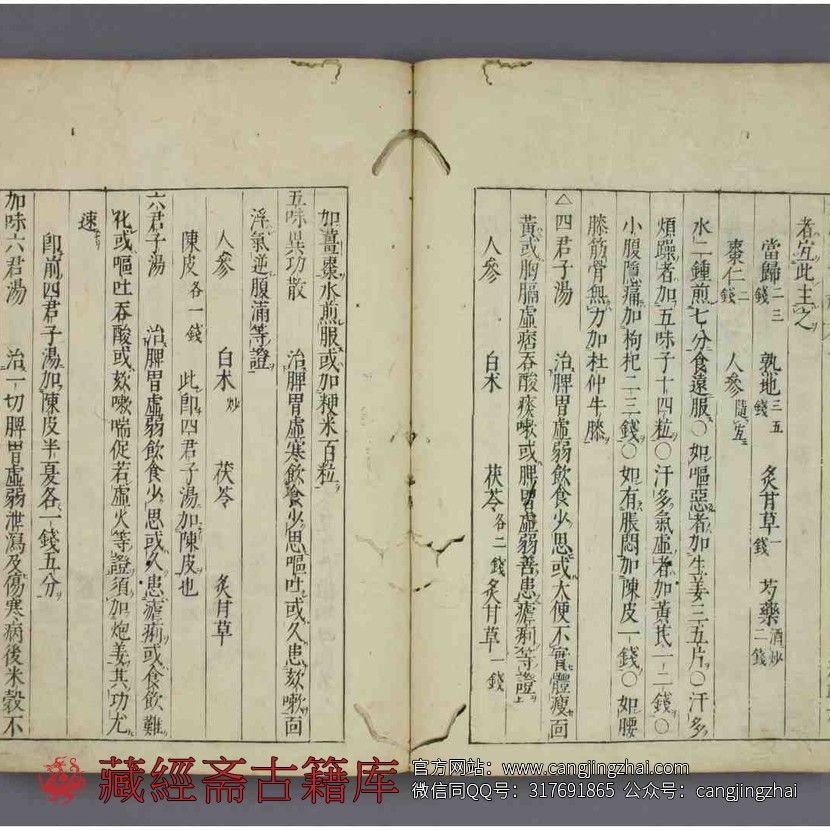 者宜此主之
當歸二三錢 熟地三五錢 炙甘草一錢 芍藥酒炒二錢
棗仁二錢 人參隨宜
水二鍾煎七分食遠服○如嘔惡者加生姜三五片○汗多
煩躁者加五味子十四粒○汗多氣虛者加黃芪一二錢○
小腹隱痛加枸杞二三錢○如有脹悶加陳皮一錢○如腰
膝筋骨無力加杜仲牛膝
△四君子湯 治脾胃虛弱飲食少思或大便不實體瘦面
黃或胸膈虛痞吞酸痰嗽或脾胃虛弱善患瘧痢等證
人參 白朮 茯苓各二錢 炙甘草一錢
加薑棗水煎服或加粳米百粒
五味異功散 治脾胃虛寒飲食少思嘔吐或久患欬嗽面
浮氣逆腹滿等證
人參 白朮炒 茯苓 炙甘草
陳皮各一錢 此即四君子湯加陳皮也
六君子湯 治脾胃虛弱飲食少思或久患瘧痢或食飲難
化或嘔吐吞酸或欬嗽喘促若虛火等證須加炮姜其功尤
速
即前四君子湯加陳皮半夏各一錢五分
加味六君湯 治一切脾胃虛弱泄瀉及傷寒病後米穀不
藏經斋古籍库
官方网站：www.cangjingzhai.com
微信同QQ号：317691865 公众号：cangjingzhai